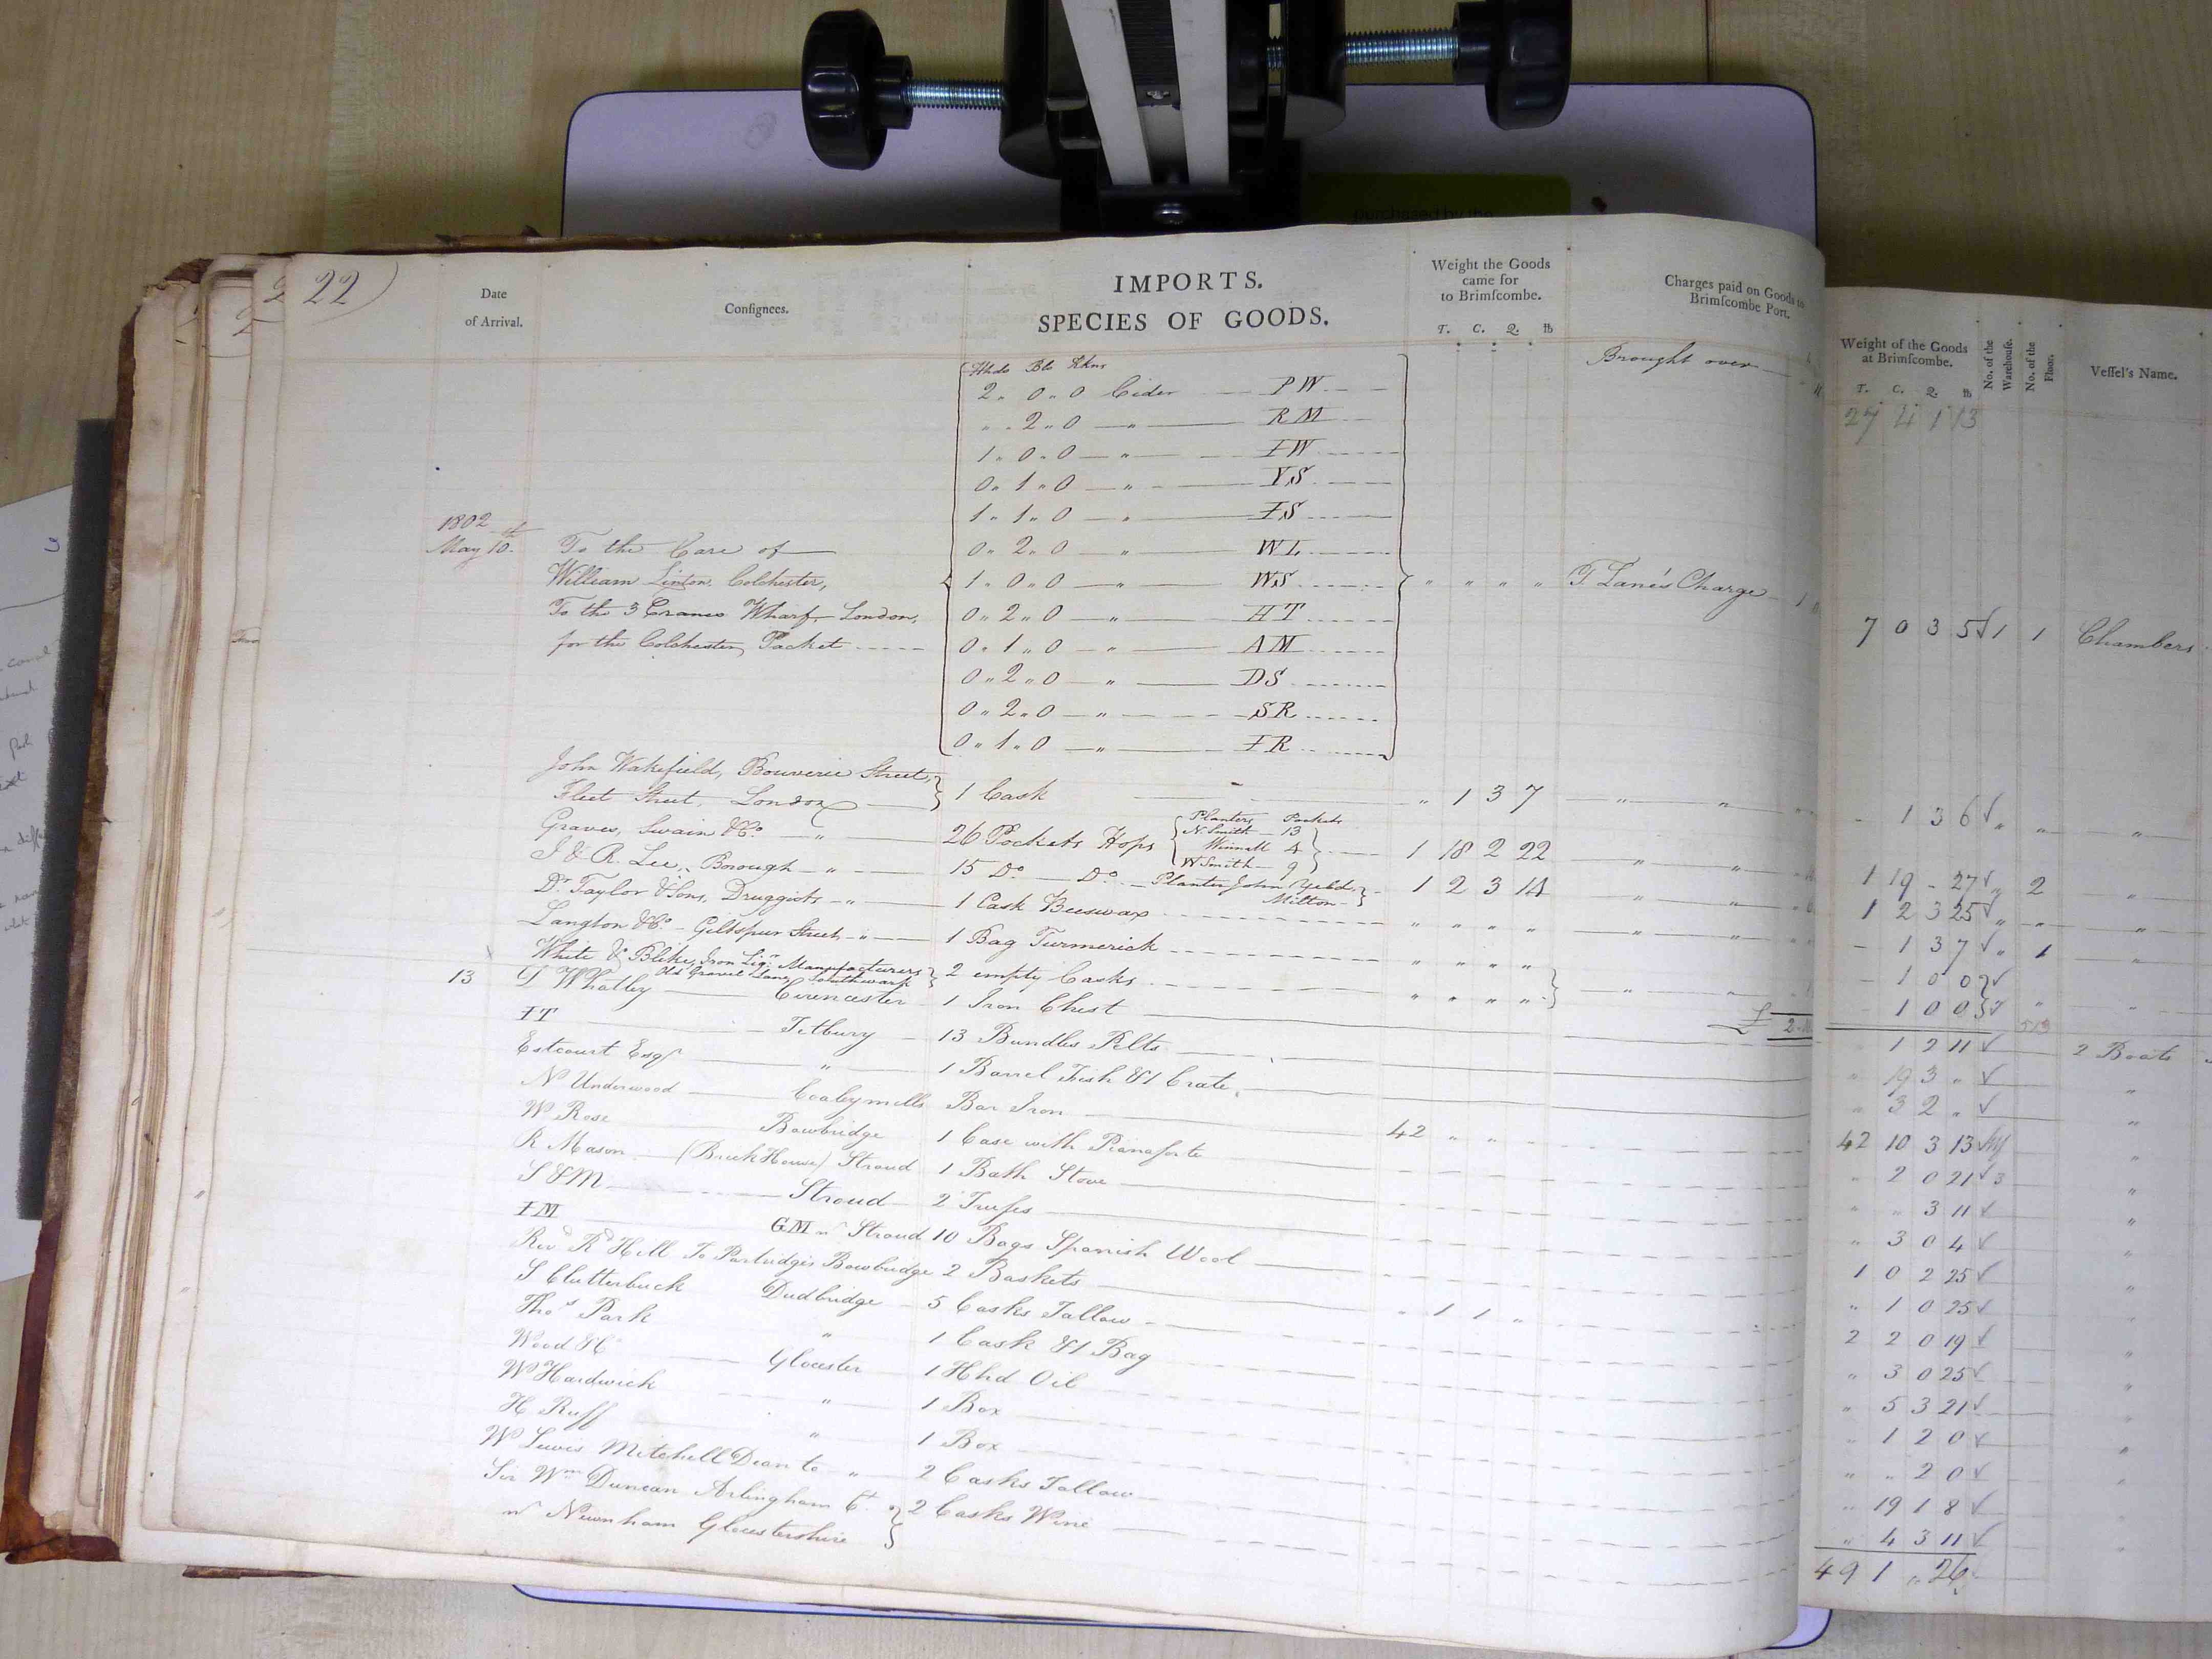 22
Date of Arrival.
Consignees.
IMPORTS.
SPECIES OF GOODS.
Weight the Goods came for to Brimſcombe.
T. C. Q. lb
Charges paid on Goods to Brimſcombe Port.
Weight of the Goods at Brimſcombe.
T. C. Q. lb
No. of the Warehouſe.
No. of the Floor.
Veſſel's Name.
Brought over
27 4 1 13
Hhds Bls
2 " 0 " 0 Cider PW
" " 2 " 0 " RM
1 " 0 " 0 " IW
0 " 1 " 0 " YS
1 " 1 " 0 " IS
1802
May 10th To the Care of 0 " 2 " 0 " WL
William Linton, Colchester, 1 " 0 " 0 " WS " " " " T Lane's Charge
To the 3 Cranes Wharf, London, 0 " 2 " 0 " HT
for the Colchester Packet 0 " 1 " 0 " AM 7 0 3 5 1 1 Chambers
0 " 2 " 0 " DS
0 " 2 " 0 " SR
0 " 1 " 0 " IR
John Wakefield, Bouverie Street,
Fleet Street, London 1 Cask " 1 3 7 " " - 1 3 6 " " "
Graves, Swain & Co. " 26 Pockets Hops 1 18 2 22 " " 1 19 - 27 " 2 "
Planters Pockets
N. Smith 13
Winnall 4
W Smith 9
J & R. Lee, Borough " 15 Do Do Planter John Milton 1 2 3 14 " " 1 2 3 25 " " "
Dr Taylor & Sons, Druggists " 1 Cask Beeswax " " " " " " - 1 3 7 " 1 "
Langton & Co. Giltspur Street " 1 Bag Turmerick " " " " - 1 0 0
White & Blike, Iron Liqr Manufacturers
Old Gravel Lane, Southwark 2 empty Casks " " " " " " 1 0 0 " "
£ 2
13 D Whatley Cirencester 1 Iron Chest 1 2 11 2 Boats
IT Tetbury 13 Bundles Pelts " 19 3 " "
Estcourt Esqr " 1 Barrel Fish & 1 Crate " 3 2 " "
N Underwood Coaleymills Bar Iron 42 " " 42 10 3 13 "
W Rose Bowbridge 1 Case with Pianoforte " 2 0 21 3 "
R Mason (Brick House) Stroud 1 Bath Stove " " 3 11 "
S & M Stroud 2 Trusses " 3 0 4 "
IM GM nr Stroud 10 Bags Spanish Wool 1 0 2 25 "
Revd Rd Hill To Partridges Bowbridge 2 Baskets " 1 1 " " 1 0 25 "
S Clutterbuck Dudbridge 5 Casks Tallow 2 2 0 19 "
Thos Park " 1 Cask & 1 Bag " 3 0 25 "
Wood & Co Glocester 1 Hhd Oil " 5 3 21 "
W Hardwick " 1 Box " 1 2 0 "
H Ruff " 1 Box " " 2 0
W Lewis Mitchell Dean to " 2 Casks Tallow " 19 1 8
Sir Wm Duncan Arlingham Ct.
nr Newnham Glocestershire 2 Casks Wine " 4 3 11
49 1 " 26